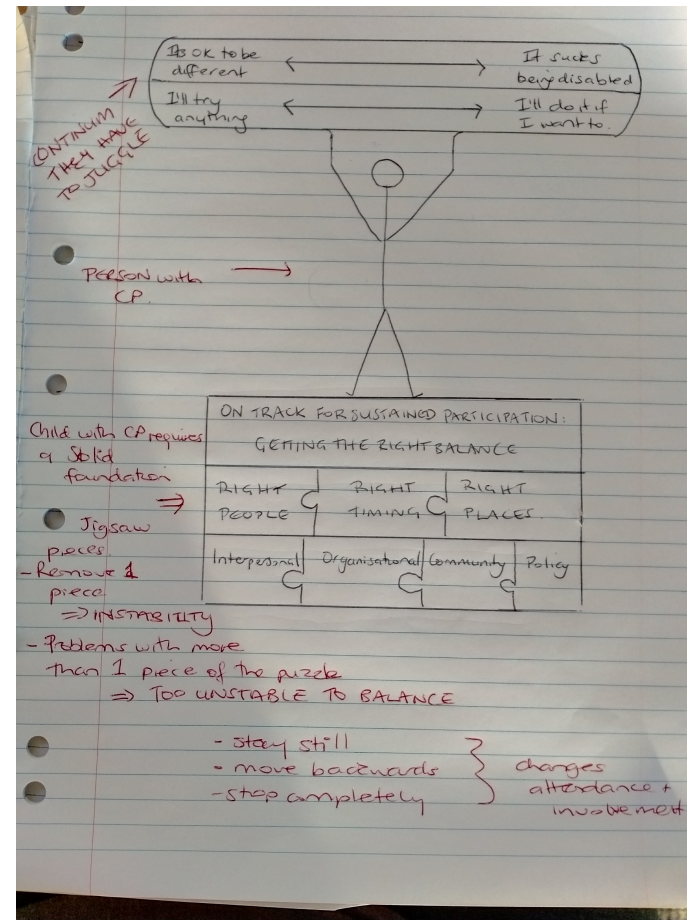 Its ok to be
different
It sucks
being disabled
I'll try
anything
I'll do it if
I want to.
CONTINUUM
THEY HAVE
TO JUGGLE
PERSON with
CP.
ON TRACK FOR SUSTAINED PARTICIPATION:
GETTING THE RIGHT BALANCE
RIGHT
PEOPLE
RIGHT
TIMING
RIGHT
PLACES
Interpersonal
Organisational
Community
Policy
Child with CP requires
a Solid
foundation
Jigsaw
pieces
- Remove 1
piece
⇒ INSTABILITY
- Problems with more
than 1 piece of the puzzle
⇒ TOO UNSTABLE TO BALANCE
- stay still
- move backwards
- stop completely
changes
attendance +
involvement